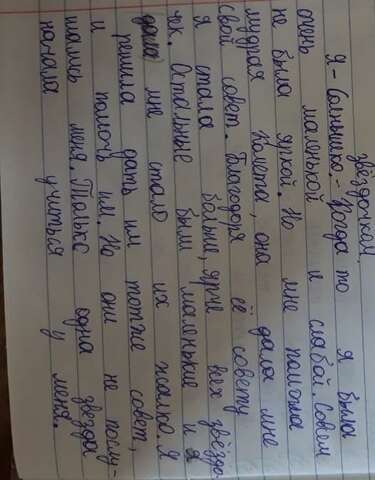 звёздочкам.
Я - Солнышко. - Когда то я была
очень маленькой и слабой. Совсем
не была яркой. Но мне помогла
мудрая Комета, она дала мне
свой совет. Благодоря её совету
я стала больше, ярче всех звёздо-
чек. Остальные были маленькие и
даже мне стало их жалко. Я
решила дать им тотже совет,
и помочь им. Но они не послу-
шались меня. Только одна звезда
начала учиться у меня.